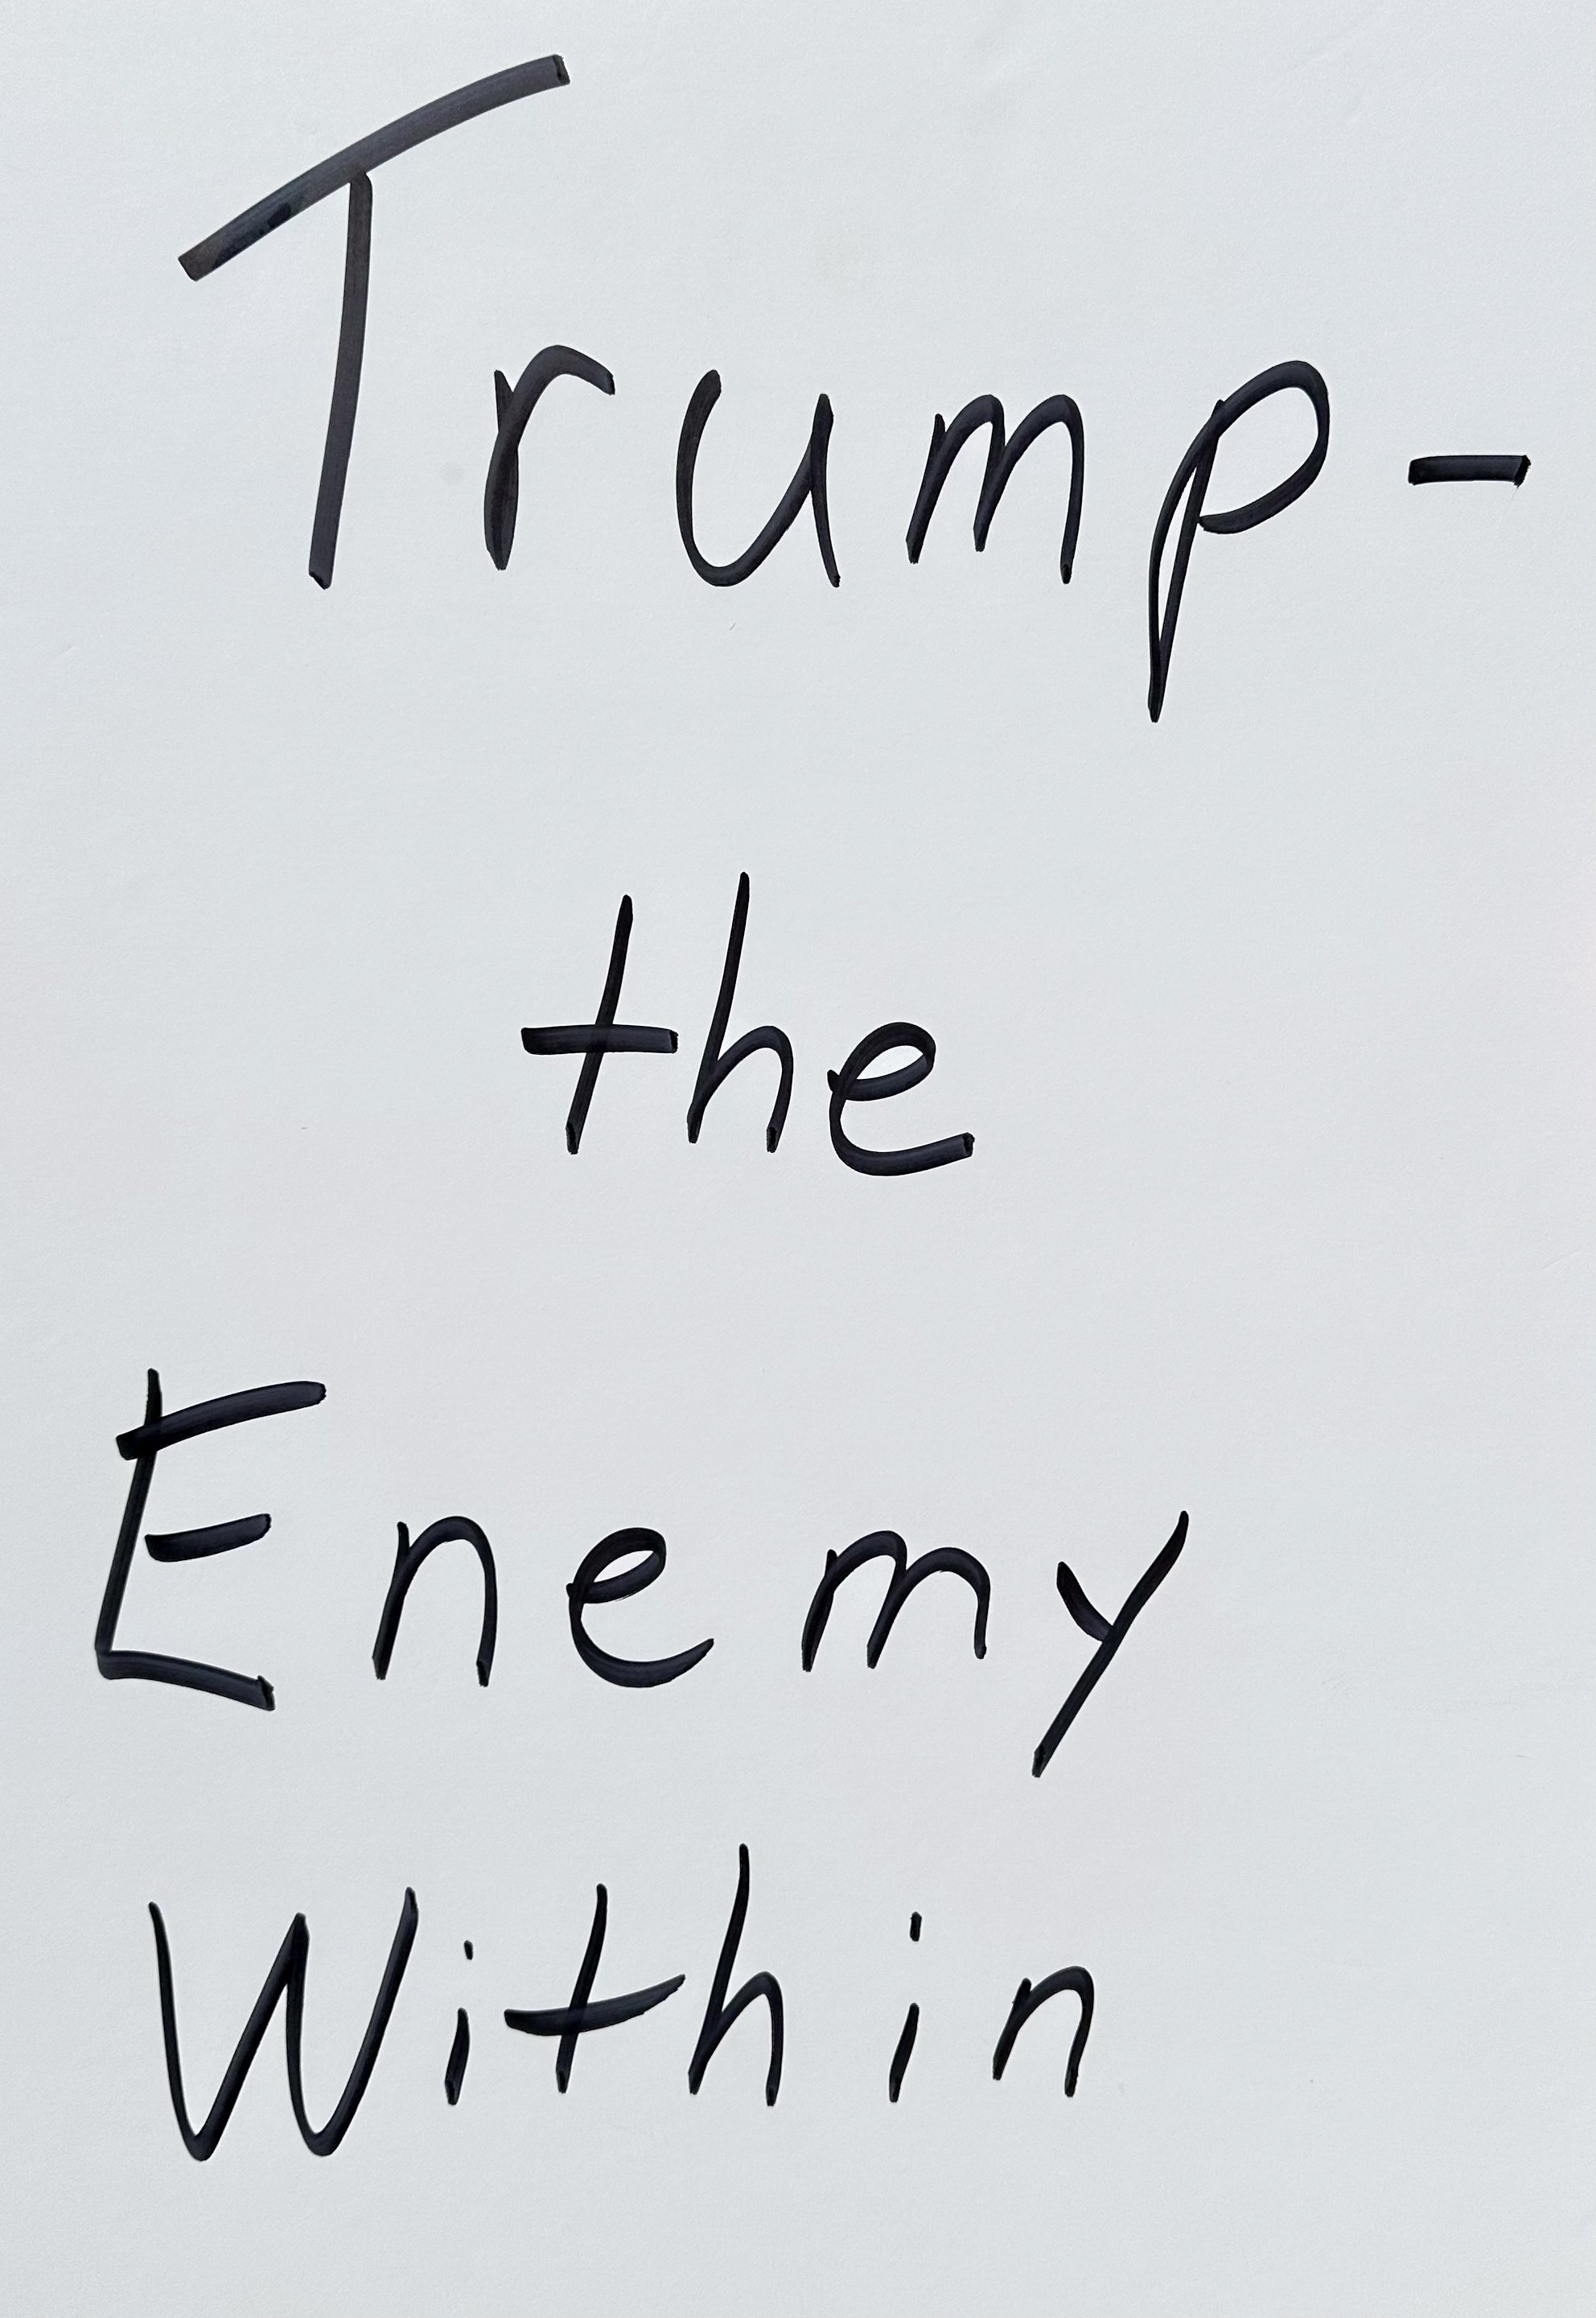 Trump-
the
Enemy
Within